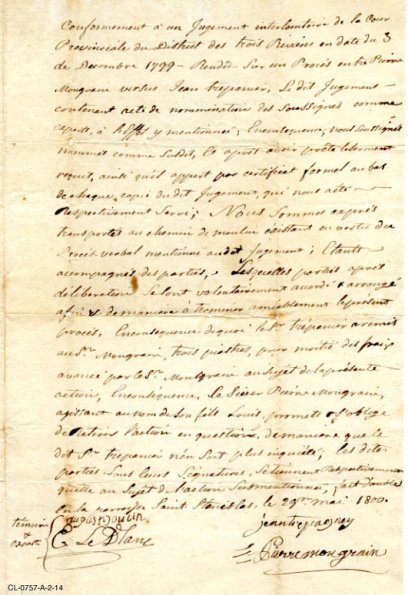 Conformement à un Jugement interlocutoire de la Cour
Provinciale du District des trois Rivieres en date du 3
de Decembre 1799 - Rendûe Sur un Procès entre Pierre
Mongrain versus Jean trepanier, Le dit Jugement
contenant acte de nommination des Soussignés comme
experts, à l'effet y mentionnés; Enconsequence, nous Soussignés
nommés comme Susdit, et aprèt avoir prete le serment
requit, ainsi qu'il appert par certificat formel au bas
de chaque copie du dit Jugement, qui nous a ete
Respectivement Servi; Nous Sommes exprès
transportés au chemin de moulin existant en vertu du
Procès verbal mentionné audit Jugement; Etants
accompagnés des parties, Lesquelles parties aprèt
déliberation Se sont volontairement accordé & arrangé
afin de terminer amiablement le present
procès, Enconsequence de quoi le Sr. trepanier a remis
au Sr. Mongrain, trois piastres, pour moitié des fraix
avancé par le Sr. Montgrain au Sujet de la présente
action, Enconsequence, Le Sieur Pierre Mongrain,
agittant au nom de Son fils Louis, promets & S'oblige
de Retirer l'action en question, de maniere que le
dit Sr. trepanier n'en Soit plus inquiété; les dites
parties Sous leurs Signatures, Se tiennent Respectivement
quitte au Sujet de l'action Susmentionnée, fait double
en la paroisse Saint Stanislas, le 29me. mai 1800.
temoin
&
expert
E. Le Blanc
Jean trepagney
Pierre mongrain
CL-0757-A-2-14